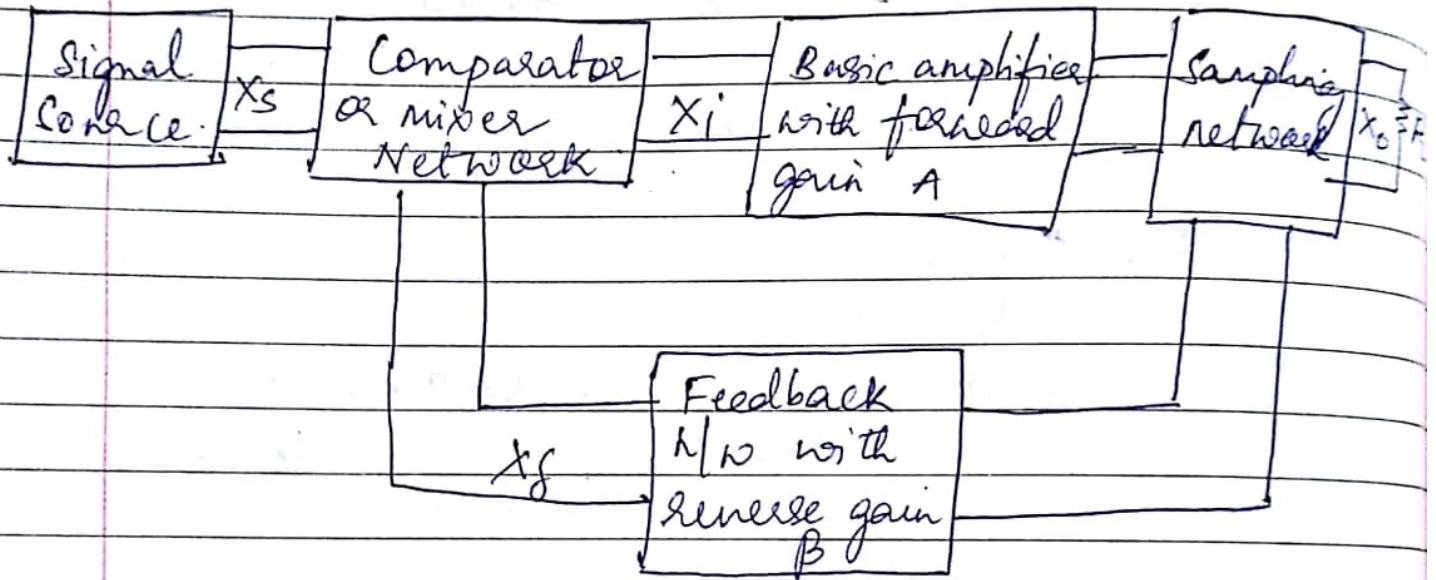 Signal
Source.
Xs
Comparator
or mixer
Network
Xi
Basic amplifier
with forward
gain A
Sampling
network
Xo
Feedback
n/w with
reverse gain
β
Xf